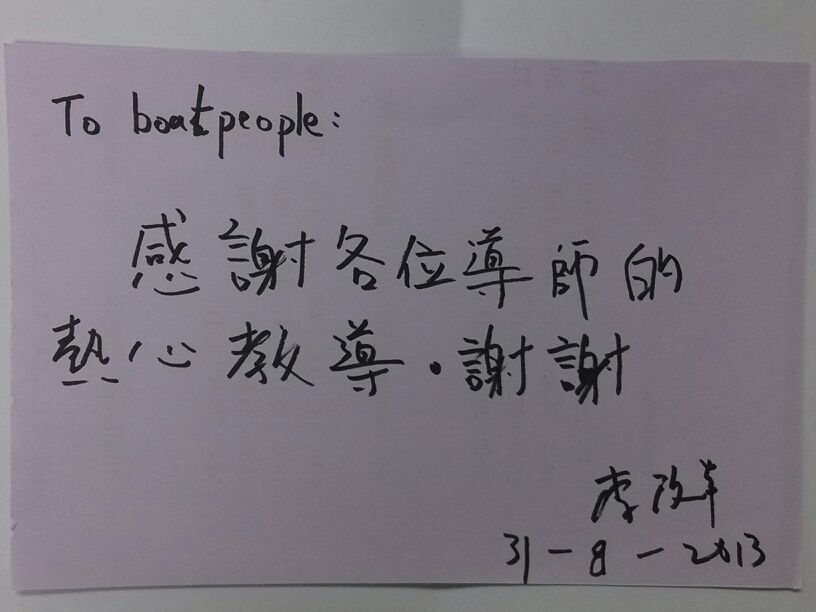 To boatpeople:
感謝各位導師的
熱心教導．謝謝
李
31-8-2013